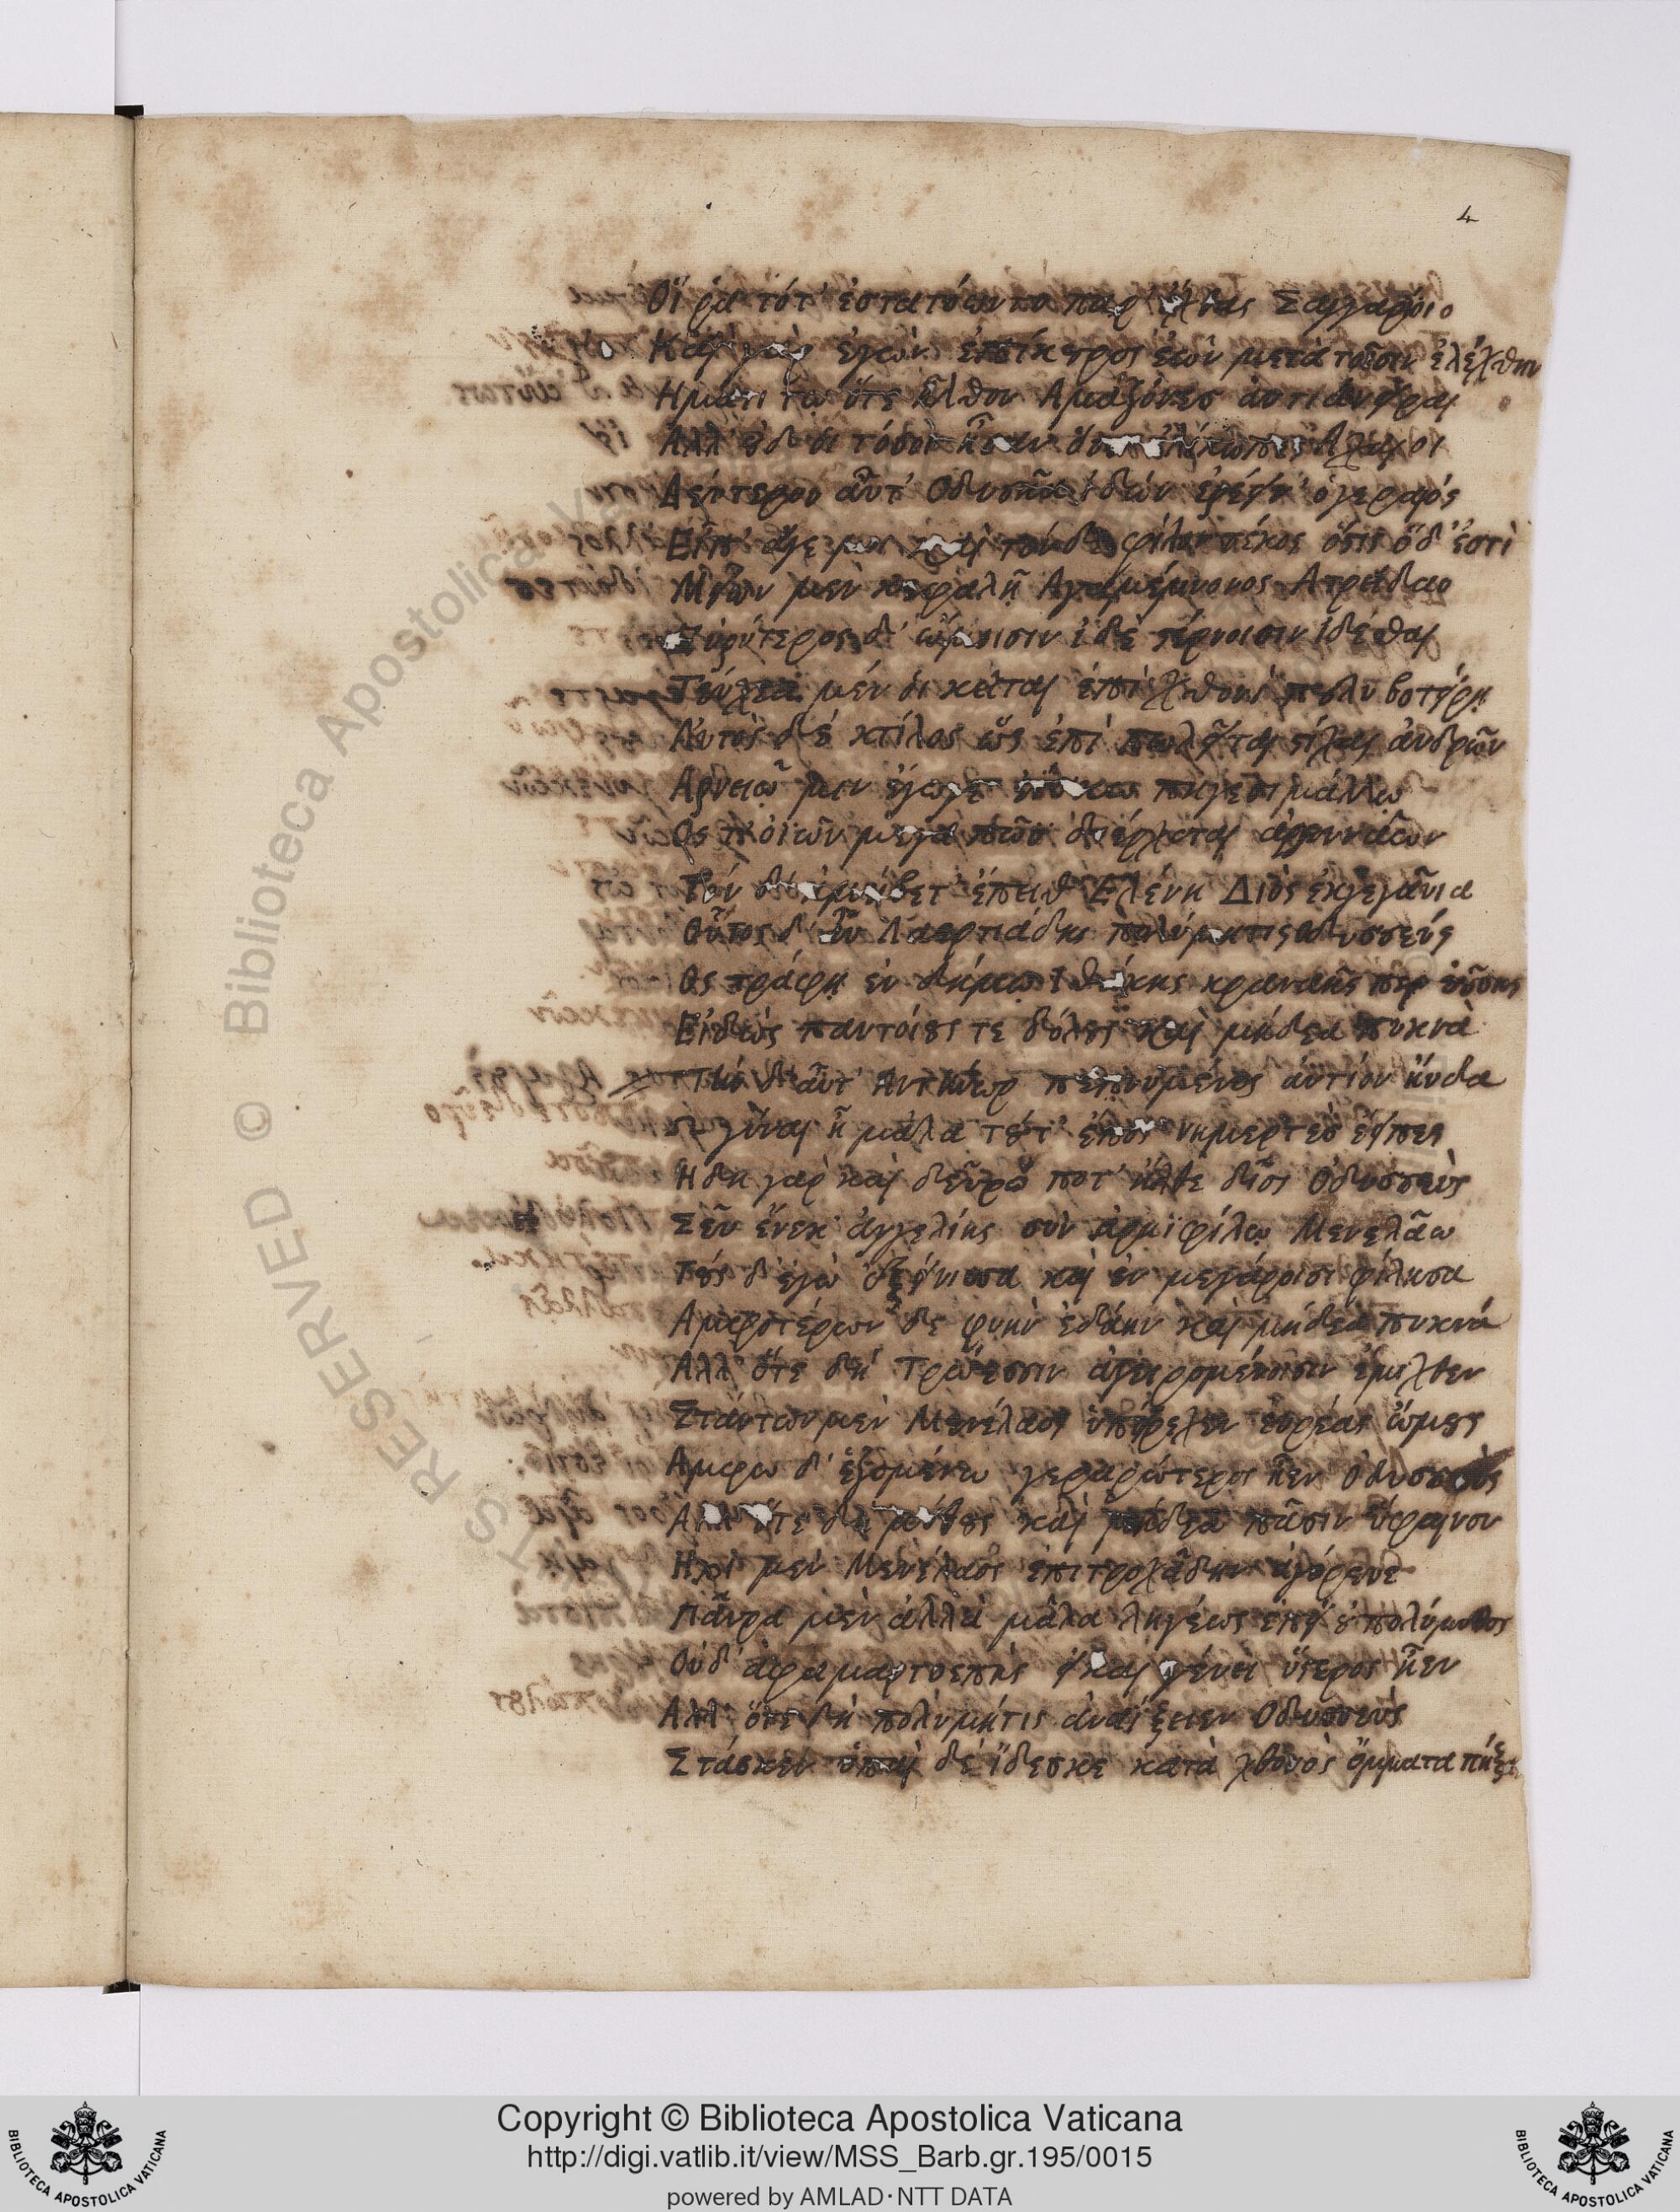 4
Οἵ ρα τότ' ἐστατόωντο παρ' ὄχθας Σαγγαρίοιο
Καὶ γὰρ ἐγὼν ἐπίκουρος ἐὼν μετὰ τοῖσιν ἐλέχθην
Ηματι τῷ ὅτε ἦλθον Αμαζόνες ἀντιάνειραι
Αλλ' ȣδ' οἱ τόσοι ἦσαν ὅσοι ἑλίκωπες Αχαιοι
Δεύτερον αὖτ' Οδυσῆα ἰδὼν ἐρέειν' ὁ γεραιός
Εἴπ' ἄγε μοι καὶ τόνδε φίλον τέκος ὅςις ὅδ' ἐστὶ
Μείων μὲν κεφαλῇ Αγαμέμνονος Ατρείδαο
Εὐρύτερος δ' ὤμοισιν ἰδὲ ςέρνοισιν ἰδέσθαι
Τεύχεα μέν οἱ κεῖται ἐπὶ χθονὶ πολυβοτείρῃ
Αυτὸς δὲ κτίλος ὣς ἐπιπωλεῖται ςίχας ἀνδρῶν
Αρνειῷ μιν ἔγωγε ἐΐσκω πηγεσιμάλλῳ
Ος τ' οἰῶν μέγα πῶυ διέρχεται ἀργεννάων
Τὸν δ' ἠμείβετ' ἔπειθ' Ελένη Διὸς ἐκγεγαῦνια
Οὗτος δ' αὖ Λαερτιάδης πολύμητις Οδυσσεύς
Ος τράφη ἐν δήμῳ Ιθάκης κραναῆς περ ἐȣσης
Εἰδὼς παντοίȣς τε δόλȣς καὶ μήδεα πυκνὰ
Τὴν δ' αὖτ' Αντήνωρ πεπνυμένος ἀντίον ηὔδα
ὦ γύναι ἦ μάλα τȣτ' ἔπος νημερτὲς ἔειπες
Ηδη γὰρ καὶ δεῦρό ποτ' ἤλθε δῖος Οδυσσεὺς
Σεῦ ἕνεκ' ἀγγελίης σὺν ἀρηϊφίλῳ Μενελάω
Τȣς δ' ἐγὼ ἐξείνισσα καὶ ἐν μεγάροισι φίλησα
Αμφοτέρων δὲ φυὴν ἐδάην καὶ μήδεα πυκνά
Αλλ' ὅτε δὴ Τρώεσσιν ἀγειρομένοισιν ἔμιχθεν
Στάντων μὲν Μενέλαος ὑπείρεχεν εὐρέας ὤμȣς
Αμφω δ' ἑζομένω γεραρώτερος ἦεν Οδυσσεὺς
Αλλ' ὅτε δὴ μύθȣς καὶ μήδεα πᾶσιν ὕφαινον
Ητοι μὲν Μενέλαος ἐπιτροχάδην ἀγόρευε
Παῦρα μὲν ἀλλὰ μάλα λιγέως ἐπεὶ ȣ πολύμυθος
Οὐδ' ἀφαμαρτοεπής εἰ καὶ γένει ὕςερος ἦεν
Αλλ' ὅτε δὴ πολύμητις ἀναΐξειεν Οδυσσεὺς
Στάσκεν ὑπαὶ δὲ ἴδεσκε κατὰ χθονὸς ὄμματα πήξας
RESERVED © Biblioteca Apostolica
Copyright © Biblioteca Apostolica Vaticana
http://digi.vatlib.it/view/MSS_Barb.gr.195/0015
powered by AMLAD·NTT DATA
BIBLIOTECA APOSTOLICA VATICANA
BIBLIOTECA APOSTOLICA VATICANA